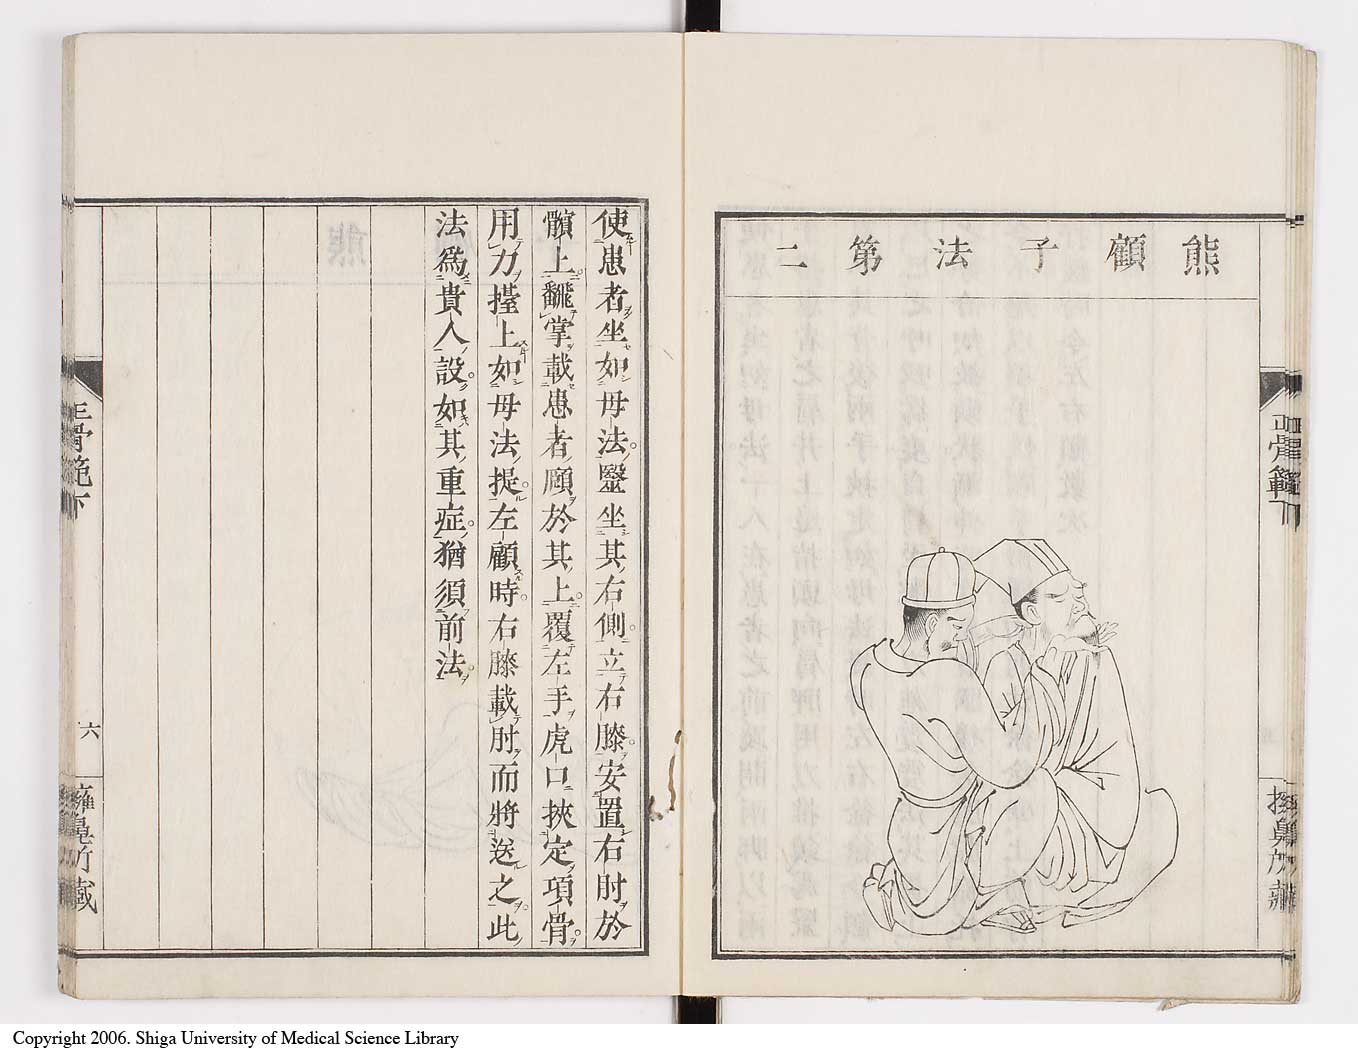 熊顧子法第二
正骨範
使患者坐如母法醫坐其右側立右膝安置右肘於
髕上飜掌載患者頤於其上覆左手虎口挾定項骨
用力擡上如母法提左顧時右膝載肘而將送之此
法爲貴人設如其重症猶須前法
正骨範下
六
Copyright 2006. Shiga University of Medical Science Library